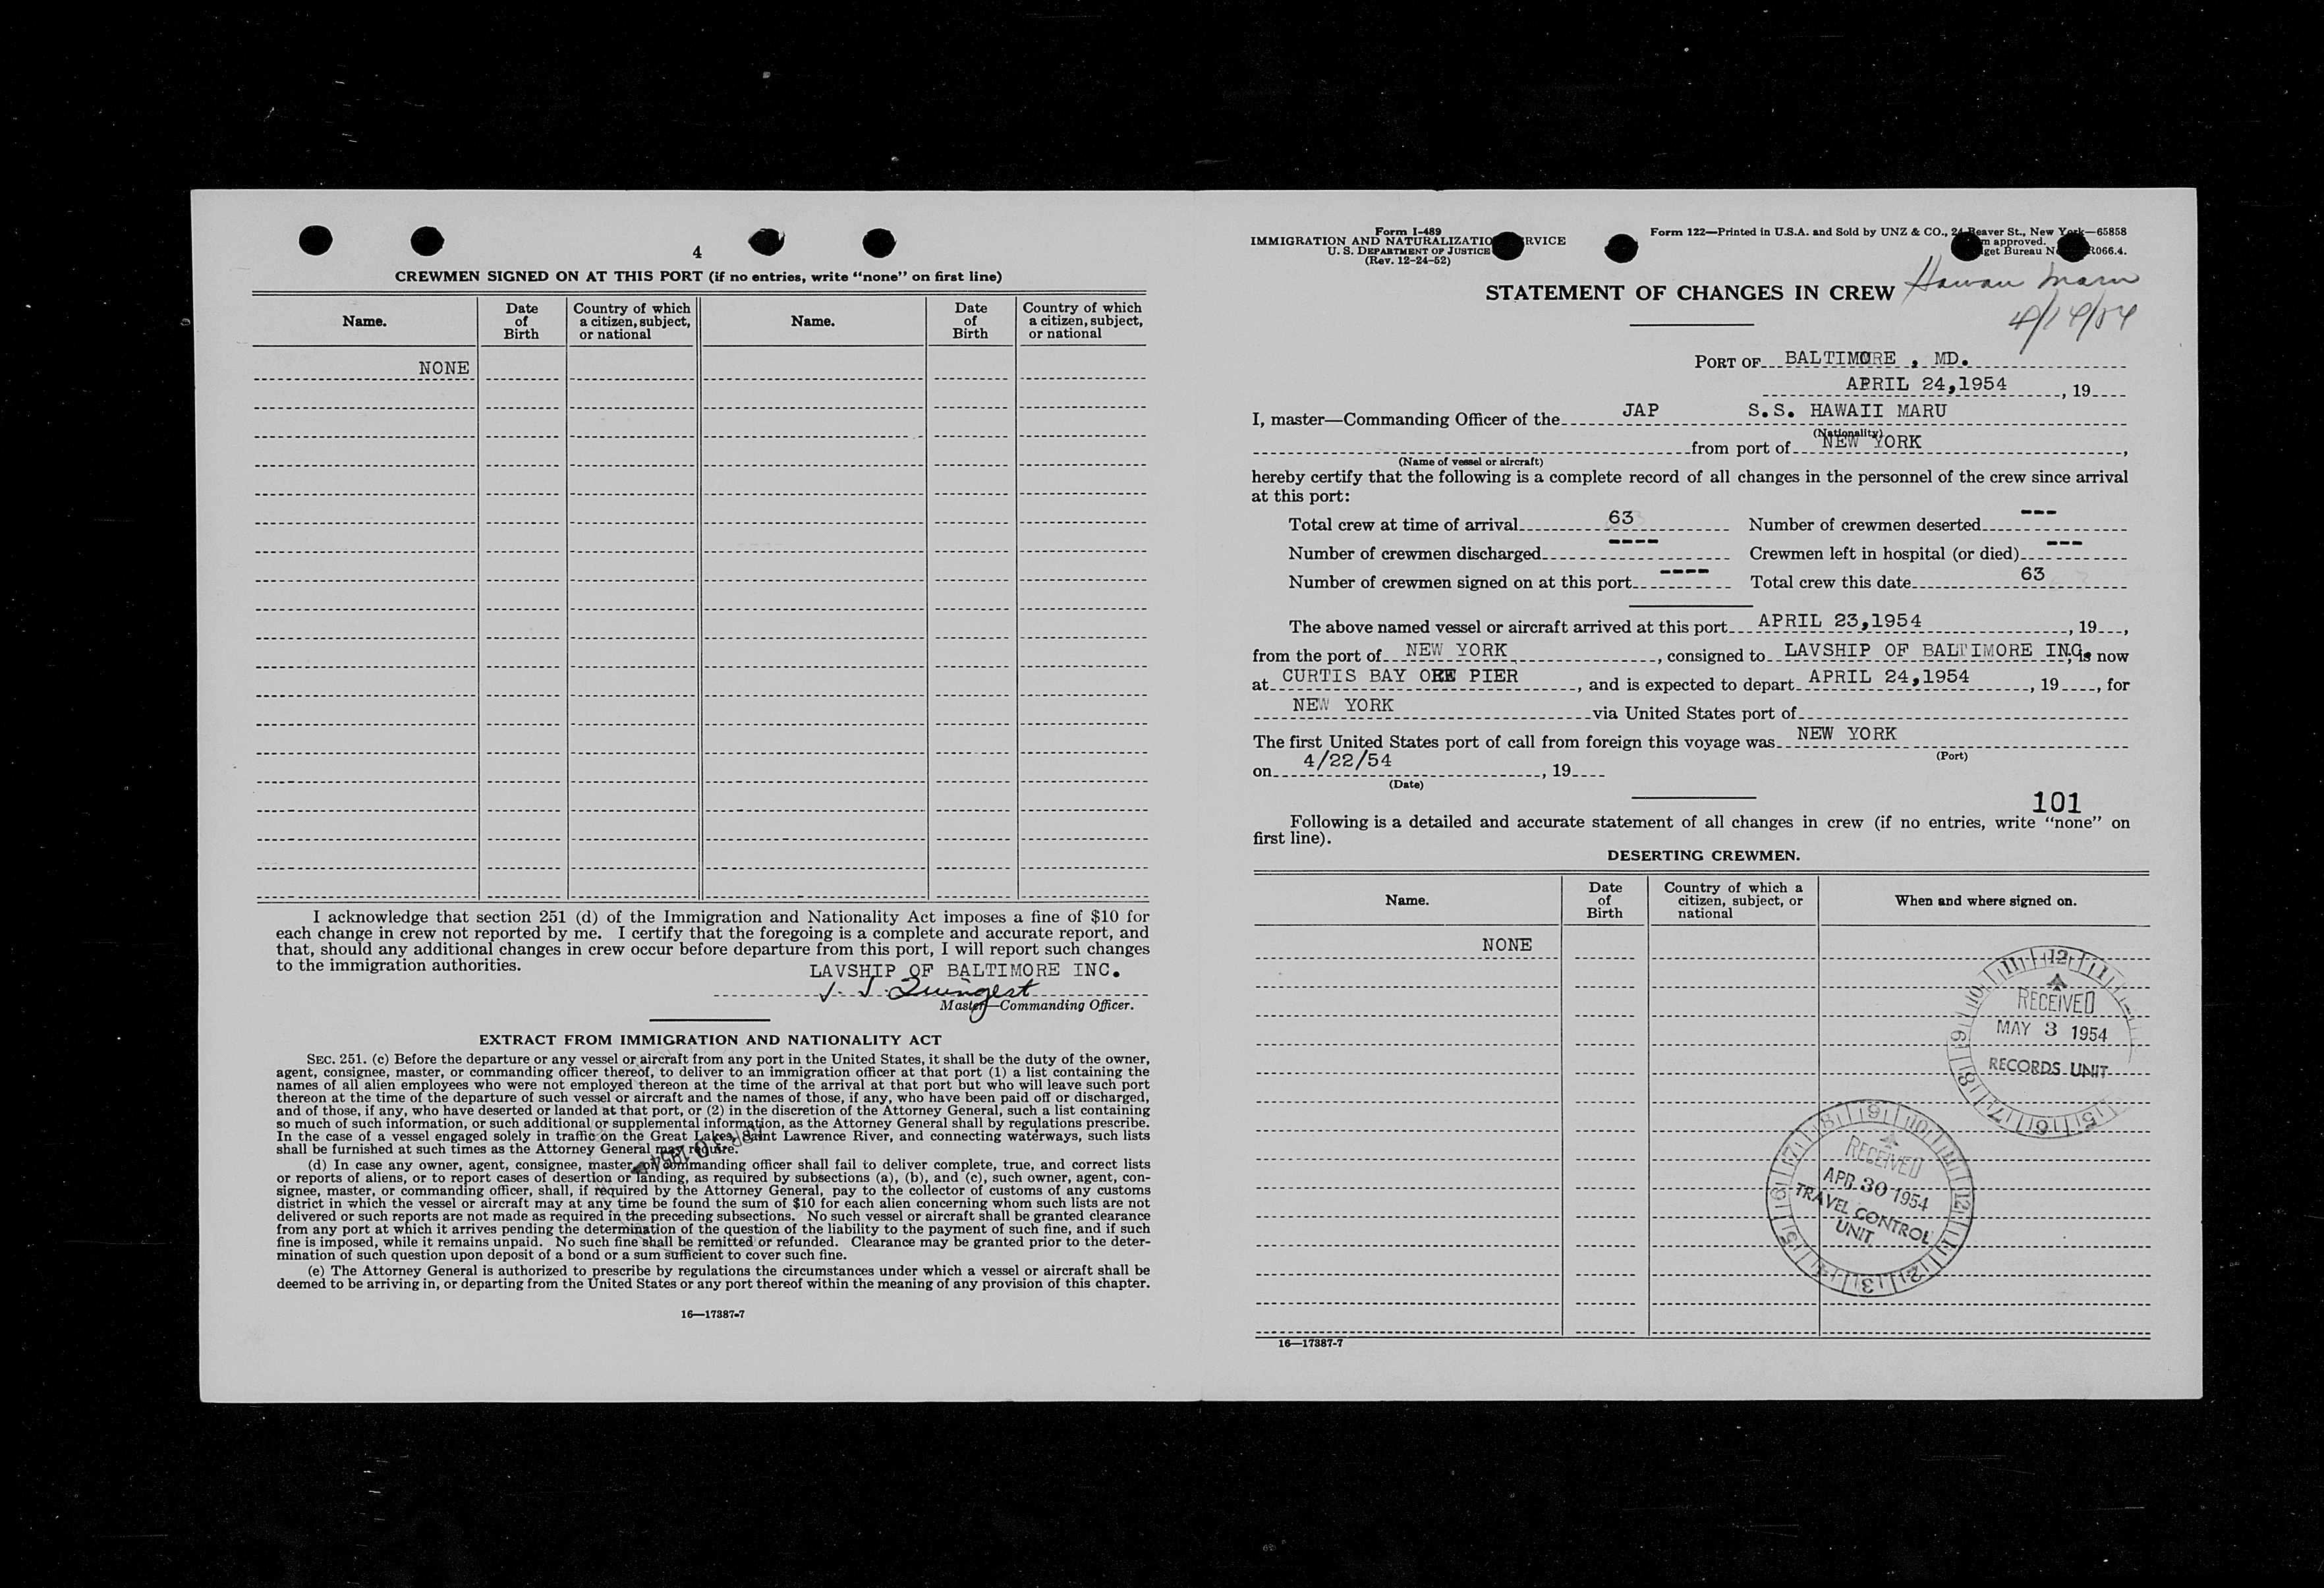 4
CREWMEN SIGNED ON AT THIS PORT (if no entries, write "none" on first line)
Name. Date of Birth Country of which a citizen, subject, or national Name. Date of Birth Country of which a citizen, subject, or national
NONE
I acknowledge that section 251 (d) of the Immigration and Nationality Act imposes a fine of $10 for
each change in crew not reported by me. I certify that the foregoing is a complete and accurate report, and
that, should any additional changes in crew occur before departure from this port, I will report such changes
to the immigration authorities.
LAVSHIP OF BALTIMORE INC.
Master—Commanding Officer.
EXTRACT FROM IMMIGRATION AND NATIONALITY ACT
SEC. 251. (c) Before the departure or any vessel or aircraft from any port in the United States, it shall be the duty of the owner,
agent, consignee, master, or commanding officer thereof, to deliver to an immigration officer at that port (1) a list containing the
names of all alien employees who were not employed thereon at the time of the arrival at that port but who will leave such port
thereon at the time of the departure of such vessel or aircraft and the names of those, if any, who have been paid off or discharged,
and of those, if any, who have deserted or landed at that port, or (2) in the discretion of the Attorney General, such a list containing
so much of such information, or such additional or supplemental information, as the Attorney General shall by regulations prescribe.
In the case of a vessel engaged solely in traffic on the Great Lakes, Saint Lawrence River, and connecting waterways, such lists
shall be furnished at such times as the Attorney General may require.
(d) In case any owner, agent, consignee, master, or commanding officer shall fail to deliver complete, true, and correct lists
or reports of aliens, or to report cases of desertion or landing, as required by subsections (a), (b), and (c), such owner, agent, con-
signee, master, or commanding officer, shall, if required by the Attorney General, pay to the collector of customs of any customs
district in which the vessel or aircraft may at any time be found the sum of $10 for each alien concerning whom such lists are not
delivered or such reports are not made as required in the preceding subsections. No such vessel or aircraft shall be granted clearance
from any port at which it arrives pending the determination of the question of the liability to the payment of such fine, and if such
fine is imposed, while it remains unpaid. No such fine shall be remitted or refunded. Clearance may be granted prior to the deter-
mination of such question upon deposit of a bond or a sum sufficient to cover such fine.
(e) The Attorney General is authorized to prescribe by regulations the circumstances under which a vessel or aircraft shall be
deemed to be arriving in, or departing from the United States or any port thereof within the meaning of any provision of this chapter.
16—17387-7
Form I-489
IMMIGRATION AND NATURALIZATIO RVICE
U. S. DEPARTMENT OF JUSTICE
(Rev. 12-24-52)
Form 122—Printed in U.S.A. and Sold by UNZ & CO., 24 Beaver St., New York—65858
approved.
get Bureau N R066.4.
STATEMENT OF CHANGES IN CREW
Maru
PORT OF BALTIMORE , MD.
APRIL 24,1954 , 19
I, master—Commanding Officer of the JAP S.S. HAWAII MARU
(Nationality)
from port of NEW YORK ,
(Name of vessel or aircraft)
hereby certify that the following is a complete record of all changes in the personnel of the crew since arrival
at this port:
Total crew at time of arrival 63 Number of crewmen deserted ---
Number of crewmen discharged ---- Crewmen left in hospital (or died) ---
Number of crewmen signed on at this port ---- Total crew this date 63
The above named vessel or aircraft arrived at this port APRIL 23,1954 , 19 ,
from the port of NEW YORK , consigned to LAVSHIP OF BALTIMORE INC. , is now
at CURTIS BAY ORE PIER , and is expected to depart APRIL 24,1954 , 19 , for
NEW YORK via United States port of
The first United States port of call from foreign this voyage was NEW YORK
(Port)
on 4/22/54 , 19
(Date)
101
Following is a detailed and accurate statement of all changes in crew (if no entries, write "none" on
first line).
DESERTING CREWMEN.
Name. Date of Birth Country of which a citizen, subject, or national When and where signed on.
NONE
RECEIVED
MAY 3 1954
RECORDS UNIT
RECEIVED
APR 30 1954
TRAVEL CONTROL
UNIT
16—17387-7